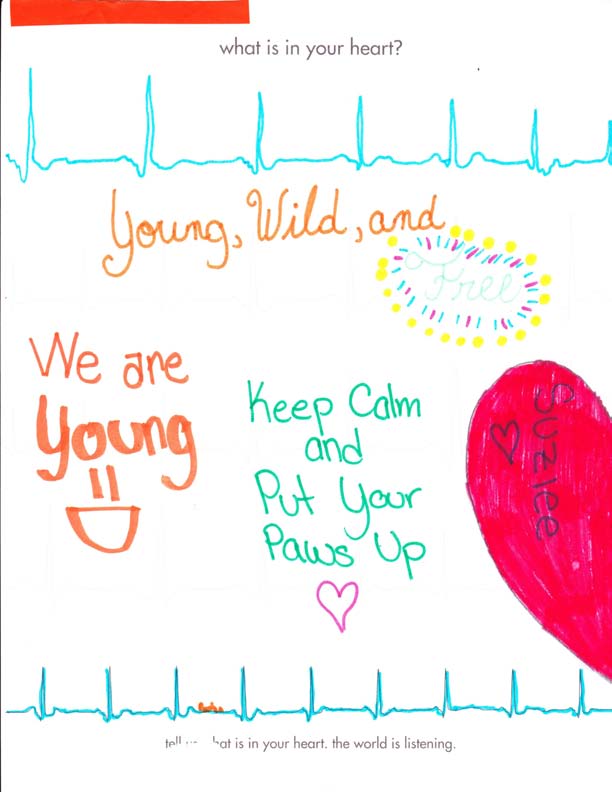 what is in your heart?
Young, Wild, and
Free
We are
Young
Keep Calm
and
Put Your
Paws Up
Suzlee
tell hat is in your heart. the world is listening.